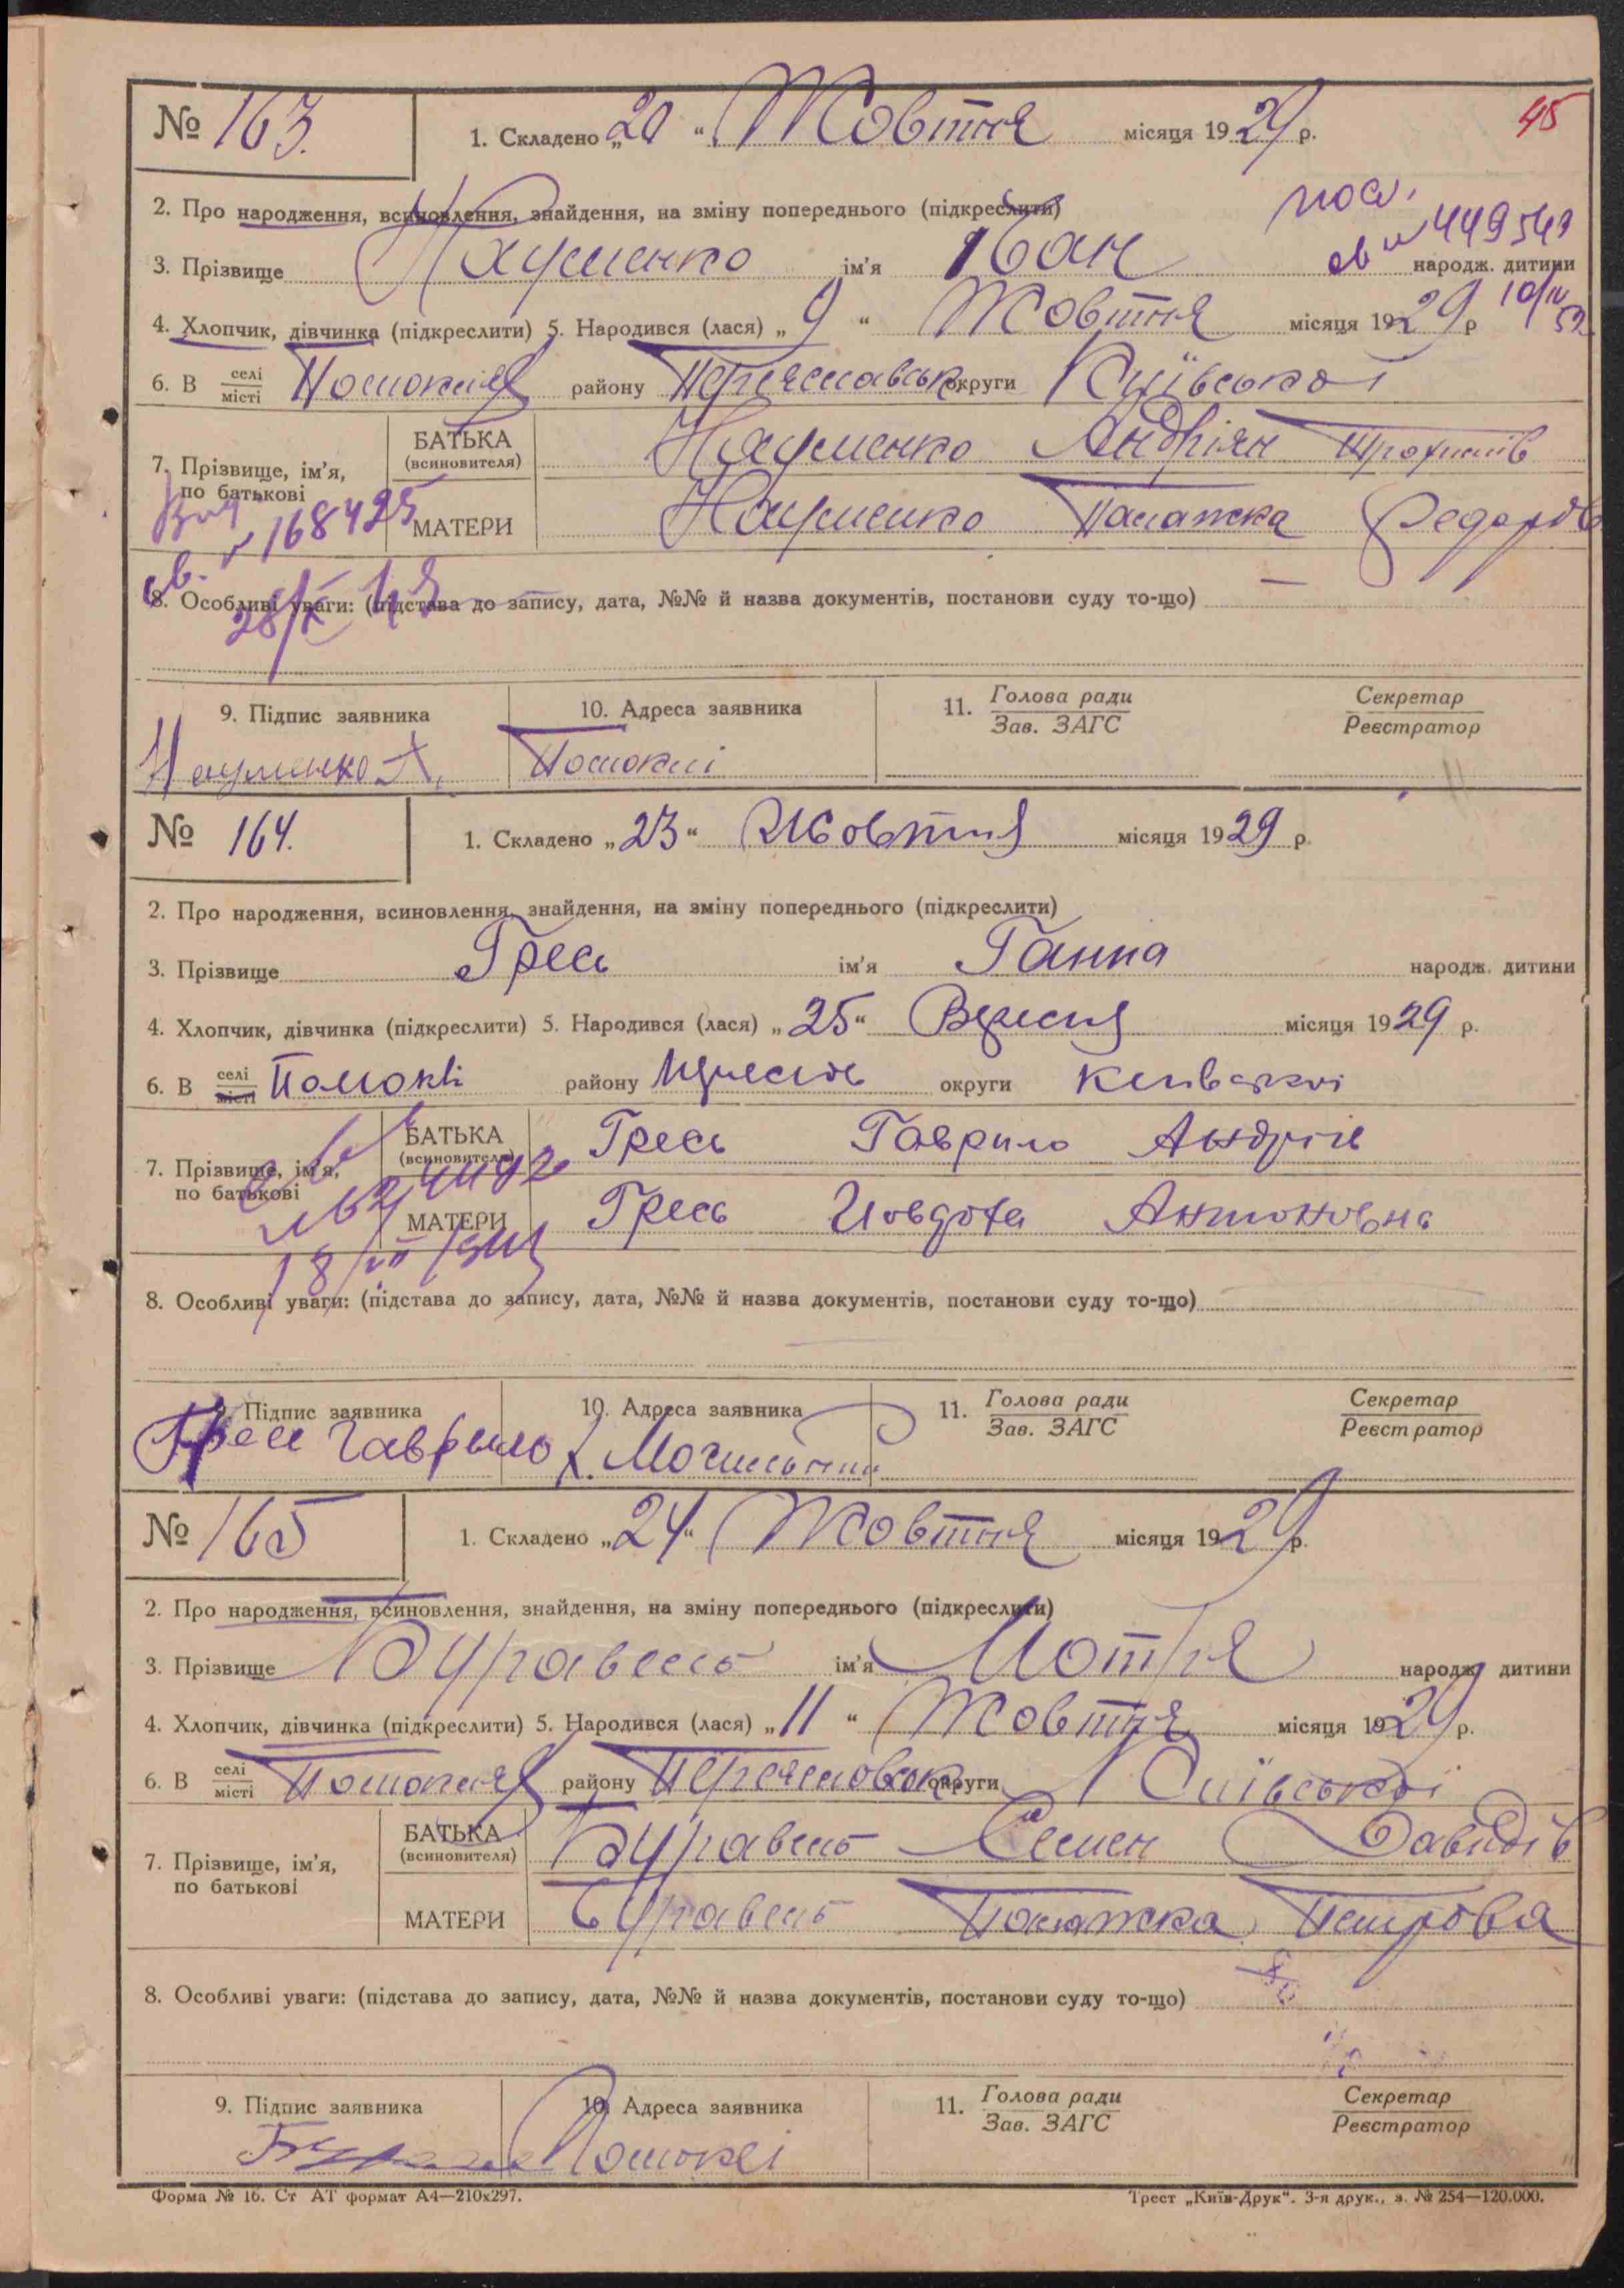 45
№ 163. 1. Складено „20“ Жовтня місяця 1929 р.
2. Про народження, всиновлення, знайдення, на зміну попереднього (підкреслити)
пов. св № 449549
3. Прізвище Науменко ім'я Іван народж. дитини
10/IV 52
4. Хлопчик, дівчинка (підкреслити) 5. Народився (лася) „9“ Жовтня місяця 1929 р
6. В селі/місті Помоклях району Переяславськ округи Київської
7. Прізвище, ім'я, по батькові
БАТЬКА (всиновителя) Науменко Андріян Трохимів
МАТЕРИ Науменко Палажка Федорів
св. № 168425
8. Особливі уваги: (підстава до запису, дата, №№ й назва документів, постанови суду то-що) —
9. Підпис заявника 10. Адреса заявника 11. Голова ради/Зав. ЗАГС Секретар/Реєстратор
Науменко А. Помоклі
№ 164. 1. Складено „23“ Жовтня місяця 1929 р.
2. Про народження, всиновлення, знайдення, на зміну попереднього (підкреслити)
3. Прізвище Гресь ім'я Ганна народж. дитини
4. Хлопчик, дівчинка (підкреслити) 5. Народився (лася) „25“ Вересня місяця 1929 р.
6. В селі/місті Помоклі району округи Київської
7. Прізвище, ім'я, по батькові
БАТЬКА (всиновителя) Гресь Гаврило Андрів
МАТЕРИ Гресь Повдоха Антоновна
8. Особливі уваги: (підстава до запису, дата, №№ й назва документів, постанови суду то-що)
9. Підпис заявника 10. Адреса заявника 11. Голова ради/Зав. ЗАГС Секретар/Реєстратор
Гресь Гаврыло
№ 165 1. Складено „24“ Жовтня місяця 1929 р.
2. Про народження, всиновлення, знайдення, на зміну попереднього (підкреслити)
3. Прізвище Журавель ім'я Мотря народж. дитини
4. Хлопчик, дівчинка (підкреслити) 5. Народився (лася) „11“ Жовтня місяця 1929 р.
6. В селі/місті Помоклях району Переяславськ округи Київської
7. Прізвище, ім'я, по батькові
БАТЬКА (всиновителя) Журавель Семен Давидів
МАТЕРИ Журавель Палажка Петрова
8. Особливі уваги: (підстава до запису, дата, №№ й назва документів, постанови суду то-що)
9. Підпис заявника 10. Адреса заявника 11. Голова ради/Зав. ЗАГС Секретар/Реєстратор
Помоклі
Форма № 16. Ст АТ формат А4—210х297. Трест „Київ-Друк“. 3-я друк., з. № 254—120.000.